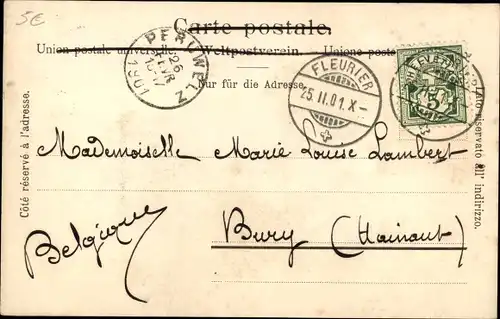 5€
Carte postale.
Union postale universelle. Weltpostverein. Unione postale
Nur für die Adresse.
PERUWELZ
26
1901
FLEURIER
25.II.01.X-
5
Côté réservé à l'adresse.
Lato riservato all' indirizzo.
Mademoiselle Marie Louise Lambert
Bury (Hainaut)
Belgique